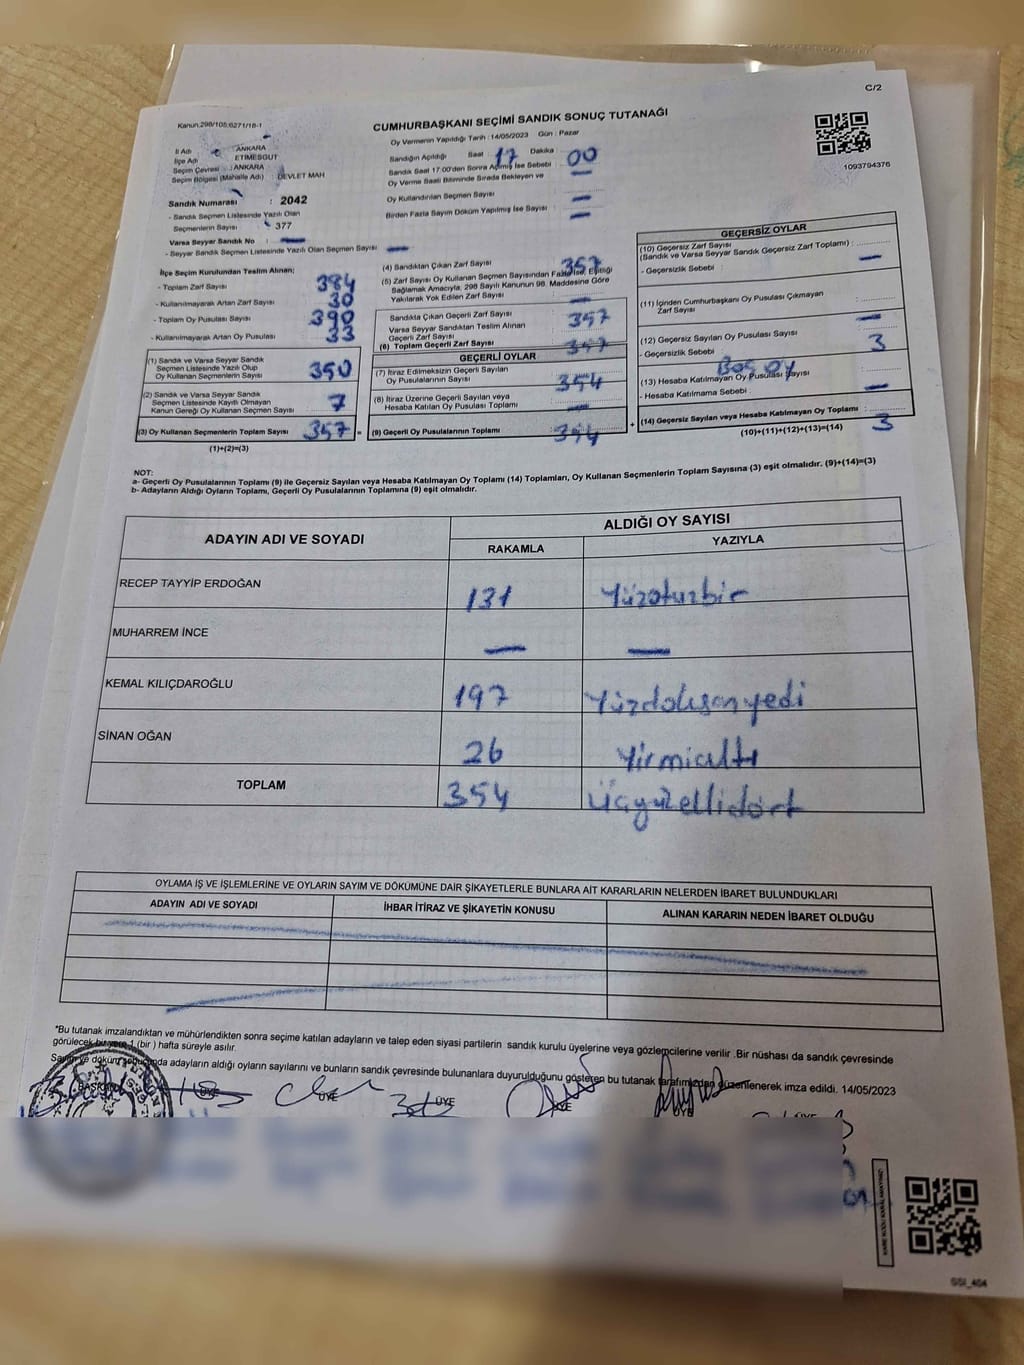 C/2
Kanun:298/105;6271/18-1
CUMHURBAŞKANI SEÇİMİ SANDIK SONUÇ TUTANAĞI
Oy Vermenin Yapıldığı Tarih :14/05/2023 Gün : Pazar
İl Adı : ANKARA
İlçe Adı : ETİMESGUT
Seçim Çevresi : ANKARA
Seçim Bölgesi (Mahalle Adı) : DEVLET MAH
Sandığın Açıldığı Saat 17 Dakika : 00
Sandık Saat 17:00'den Sonra Açılmış İse Sebebi
Oy Verme Saati Bitiminde Sırada Bekleyen ve
Oy Kullandırılan Seçmen Sayısı
Birden Fazla Sayım Döküm Yapılmış İse Sayısı
1093794376
Sandık Numarası : 2042
- Sandık Seçmen Listesinde Yazılı Olan
Seçmenlerin Sayısı : 377
Varsa Seyyar Sandık No :
- Seyyar Sandık Seçmen Listesinde Yazılı Olan Seçmen Sayısı
İlçe Seçim Kurulundan Teslim Alınan;
- Toplam Zarf Sayısı 384
- Kullanılmayarak Artan Zarf Sayısı 30
- Toplam Oy Pusulası Sayısı 390
- Kullanılmayarak Artan Oy Pusulası 33
(1) Sandık ve Varsa Seyyar Sandık
Seçmen Listesinde Yazılı Olup
Oy Kullanan Seçmenlerin Sayısı 350
(2) Sandık ve Varsa Seyyar Sandık
Seçmen Listesinde Kayıtlı Olmayan
Kanun Gereği Oy Kullanan Seçmen Sayısı 7
(3) Oy Kullanan Seçmenlerin Toplam Sayısı 357 =
(1)+(2)=(3)
(4) Sandıktan Çıkan Zarf Sayısı 357
(5) Zarf Sayısı Oy Kullanan Seçmen Sayısından Fazla İse, Eşitliği
Sağlamak Amacıyla, 298 Sayılı Kanunun 98. Maddesine Göre
Yakılarak Yok Edilen Zarf Sayısı
Sandıkta Çıkan Geçerli Zarf Sayısı 357
Varsa Seyyar Sandıktan Teslim Alınan
Geçerli Zarf Sayısı
(6) Toplam Geçerli Zarf Sayısı 357
GEÇERLİ OYLAR
(7) İtiraz Edilmeksizin Geçerli Sayılan
Oy Pusulalarının Sayısı : 354
(8) İtiraz Üzerine Geçerli Sayılan veya
Hesaba Katılan Oy Pusulası Toplamı
(9) Geçerli Oy Pusulalarının Toplamı : 354 +
GEÇERSİZ OYLAR
(10) Geçersiz Zarf Sayısı
(Sandık ve Varsa Seyyar Sandık Geçersiz Zarf Toplamı) :
- Geçersizlik Sebebi :
(11) İçinden Cumhurbaşkanı Oy Pusulası Çıkmayan
Zarf Sayısı
(12) Geçersiz Sayılan Oy Pusulası Sayısı 3
- Geçersizlik Sebebi : Boş oy
(13) Hesaba Katılmayan Oy Pusulası Sayısı
- Hesaba Katılmama Sebebi :
(14) Geçersiz Sayılan veya Hesaba Katılmayan Oy Toplamı : 3
(10)+(11)+(12)+(13)=(14)
NOT:
a- Geçerli Oy Pusulalarının Toplamı (9) ile Geçersiz Sayılan veya Hesaba Katılmayan Oy Toplamı (14) Toplamları, Oy Kullanan Seçmenlerin Toplam Sayısına (3) eşit olmalıdır. (9)+(14)=(3)
b- Adayların Aldığı Oyların Toplamı, Geçerli Oy Pusulalarının Toplamına (9) eşit olmalıdır.
ADAYIN ADI VE SOYADI
ALDIĞI OY SAYISI
RAKAMLA YAZIYLA
RECEP TAYYİP ERDOĞAN 131 Yüzotuzbir
MUHARREM İNCE
KEMAL KILIÇDAROĞLU 197 Yüzdoksanyedi
SİNAN OĞAN 26 Yirmialtı
TOPLAM 354 Üçyüzellidört
OYLAMA İŞ VE İŞLEMLERİNE VE OYLARIN SAYIM VE DÖKÜMÜNE DAİR ŞİKAYETLERLE BUNLARA AİT KARARLARIN NELERDEN İBARET BULUNDUKLARI
ADAYIN ADI VE SOYADI İHBAR İTİRAZ VE ŞİKAYETİN KONUSU ALINAN KARARIN NEDEN İBARET OLDUĞU
*Bu tutanak imzalandıktan ve mühürlendikten sonra seçime katılan adayların ve talep eden siyasi partilerin sandık kurulu üyelerine veya gözlemcilerine verilir .Bir nüshası da sandık çevresinde
görülecek bir yere 1 (bir ) hafta süreyle asılır.
Sayım ve döküm sonucunda adayların aldığı oyların sayılarını ve bunların sandık çevresinde bulunanlara duyurulduğunu gösteren bu tutanak tarafımızdan düzenlenerek imza edildi. 14/05/2023
BAŞKAN ÜYE ÜYE ÜYE ÜYE ÜYE ÜYE
SSI_404